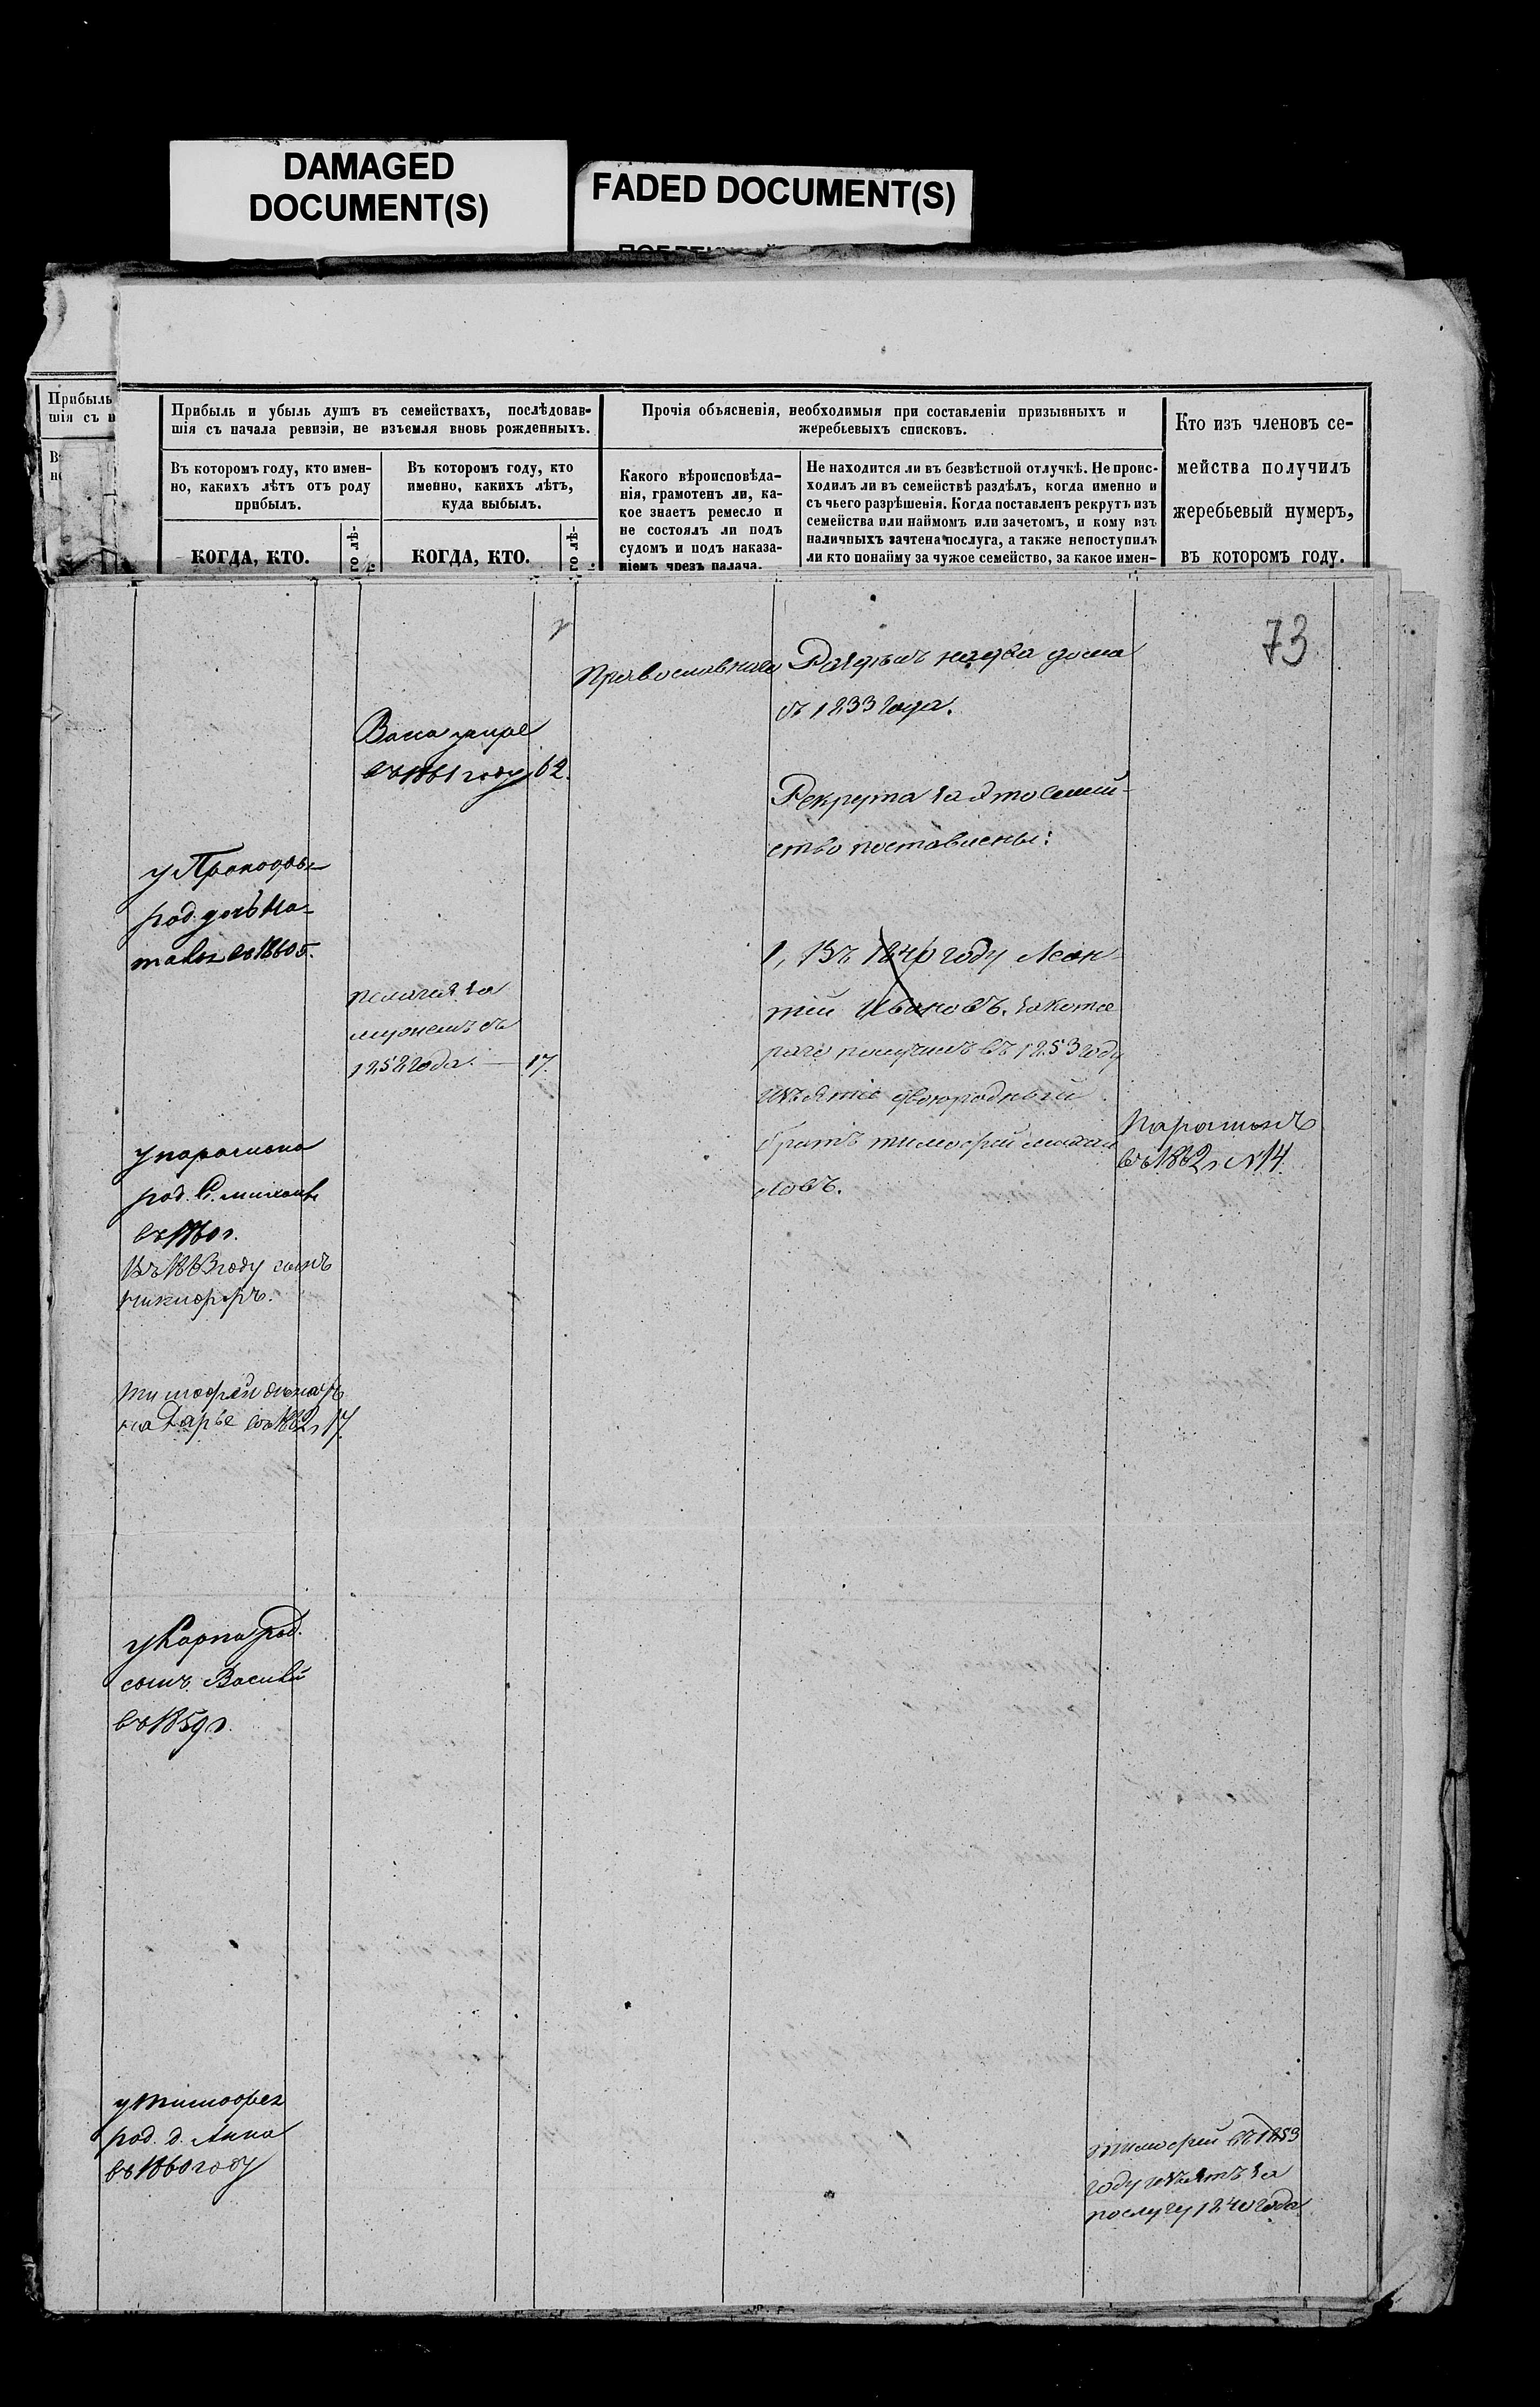 DAMAGED
DOCUMENT(S)
FADED DOCUMENT(S)
Прибыль
шія съ н
Прибыль и убыль душъ въ семействахъ, послѣдовав-
шія съ начала ревизіи, не изъемля вновь рожденныхъ.
Въ которомъ году, кто имен-
но, какихъ лѣтъ отъ роду
прибылъ.
КОГДА, КТО.
Въ которомъ году, кто
именно, какихъ лѣтъ,
куда выбылъ.
КОГДА, КТО.
Прочія объясненія, необходимыя при составленіи призывныхъ и
жеребьевыхъ списковъ.
Какого вѣроисповѣда-
нія, грамотенъ ли, ка-
кое знаетъ ремесло и
не состоялъ ли подъ
судомъ и подъ наказа-
ніемъ чрезъ палача.
Не находится ли въ безвѣстной отлучкѣ. Не проис-
ходилъ ли въ семействѣ раздѣлъ, когда именно и
съ чьего разрѣшенія. Когда поставленъ рекрутъ изъ
семейства или наймомъ или зачетомъ, и кому изъ
наличныхъ зачтена послуга, а также непоступилъ
ли кто понайму за чужое семейство, за какое имен-
Кто изъ членовъ се-
мейства получилъ
жеребьевый нумеръ,
въ которомъ году.
73
Православнаго
Раздѣлъ на два дома
съ 1833 года.
Васса умре
въ 1861 году 62.
Рекрута за это семей-
ство поставлены:
у Прокофья
род. дочь На-
талья въ 1860
1, Въ 1840 году Леон-
тій Ивановъ, за кото
раго получилъ въ 1853 году
изъятіе двоюродный
братъ тимофей михаи
ловъ.
пелагея за
мужемъ съ
1858 года. — 17.
у парамона
род. С. михаилъ
въ 1860 г.
Въ 1863 году сынъ
никифоръ.
Парамонъ
въ 1862 г № 14
тимофей женатъ
на Дарье въ 1862 г 17
у Карпа род.
сынъ Василій
въ 1859 г.
у тимофея
род. д. Анна
въ 1860 году
тимофей въ 1853
году изъятъ за
послугу 1840 года